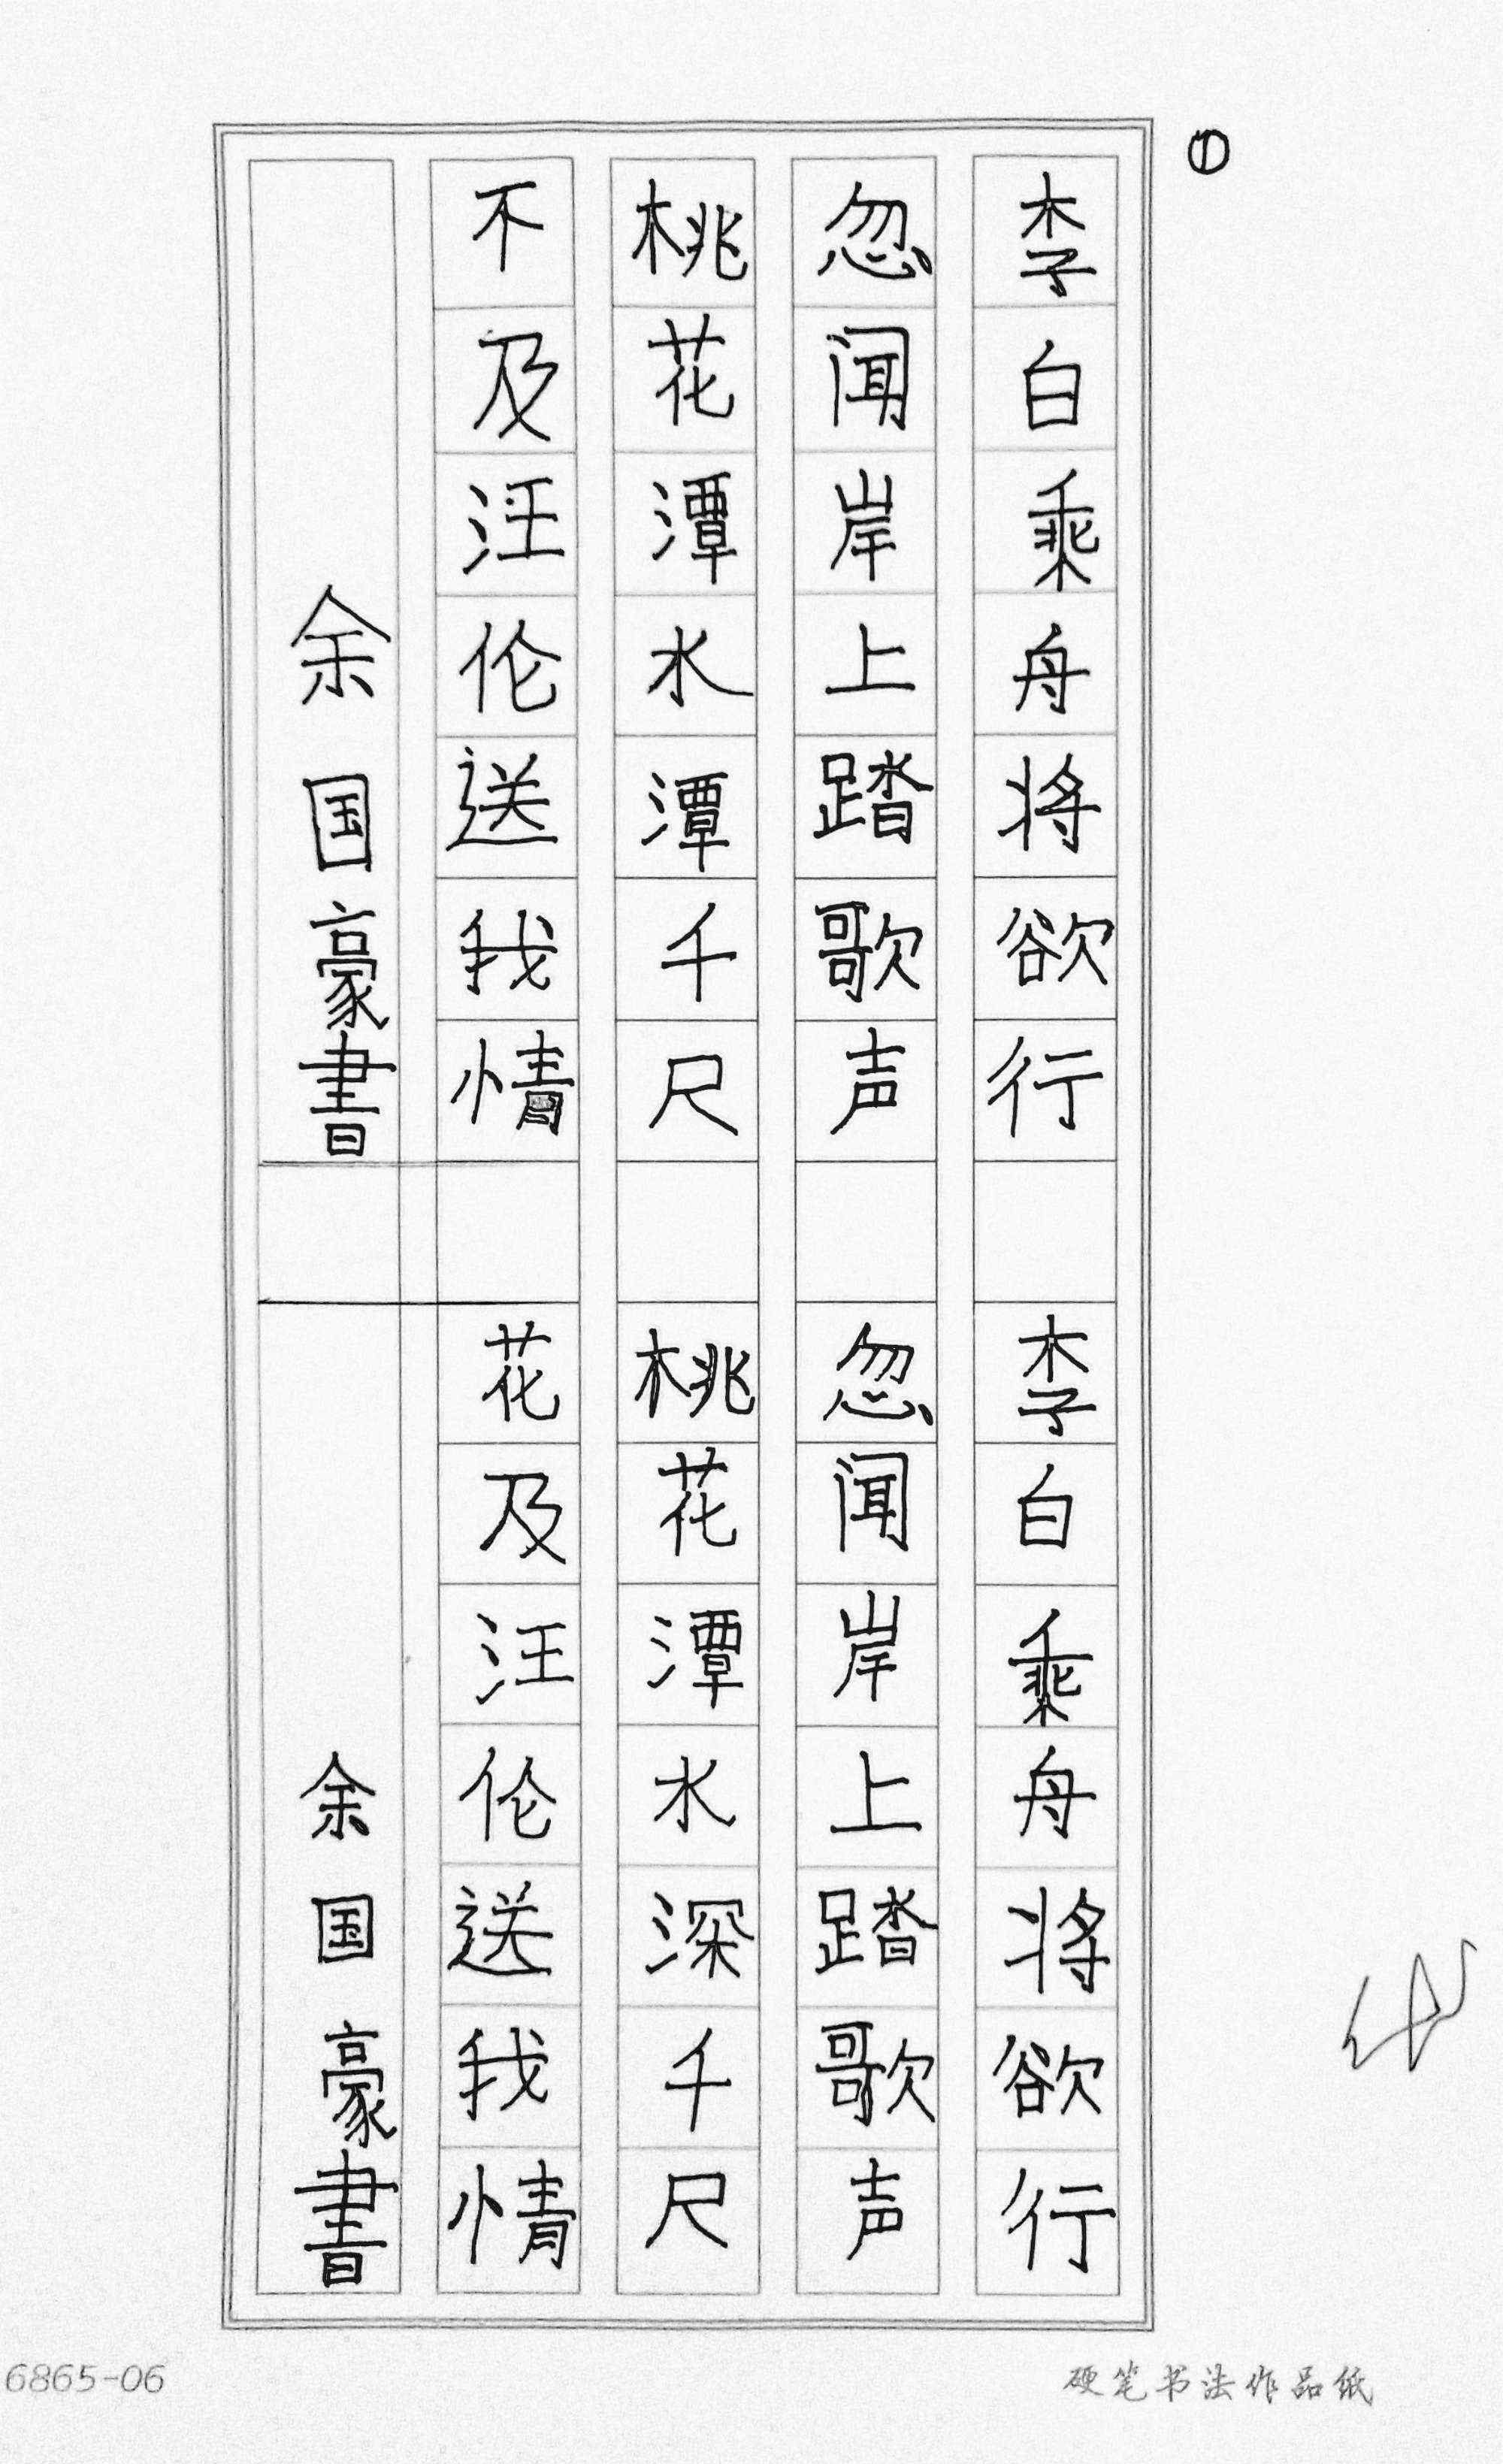 ①
李白乘舟将欲行
忽闻岸上踏歌声
桃花潭水潭千尺
不及汪伦送我情
余国豪書
李白乘舟将欲行
忽闻岸上踏歌声
桃花潭水深千尺
花及汪伦送我情
余国豪書
6865-06
硬笔书法作品纸